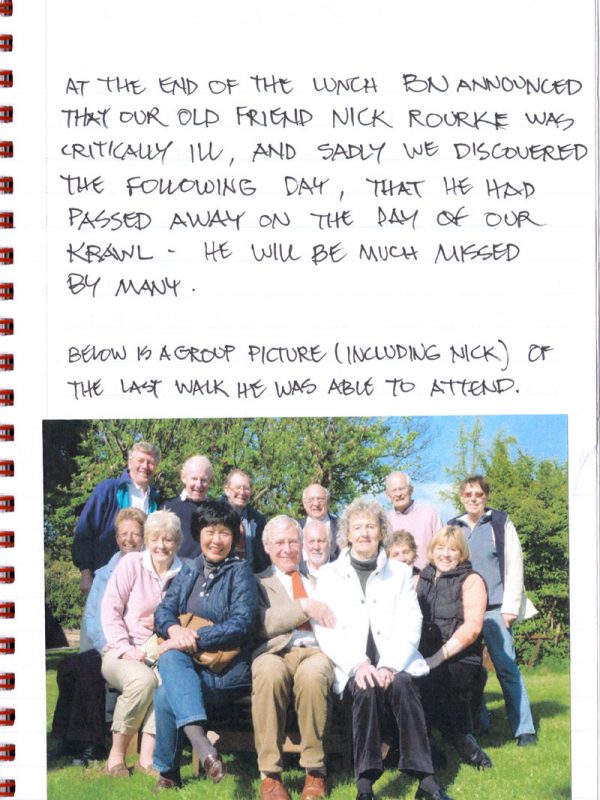 AT THE END OF THE LUNCH BN ANNOUNCED
THAT OUR OLD FRIEND NICK ROURKE WAS
CRITICALLY ILL, AND SADLY WE DISCOVERED
THE FOLLOWING DAY, THAT HE HAD
PASSED AWAY ON THE DAY OF OUR
KRAWL - HE WILL BE MUCH MISSED
BY MANY.
BELOW IS A GROUP PICTURE (INCLUDING NICK) OF
THE LAST WALK HE WAS ABLE TO ATTEND.